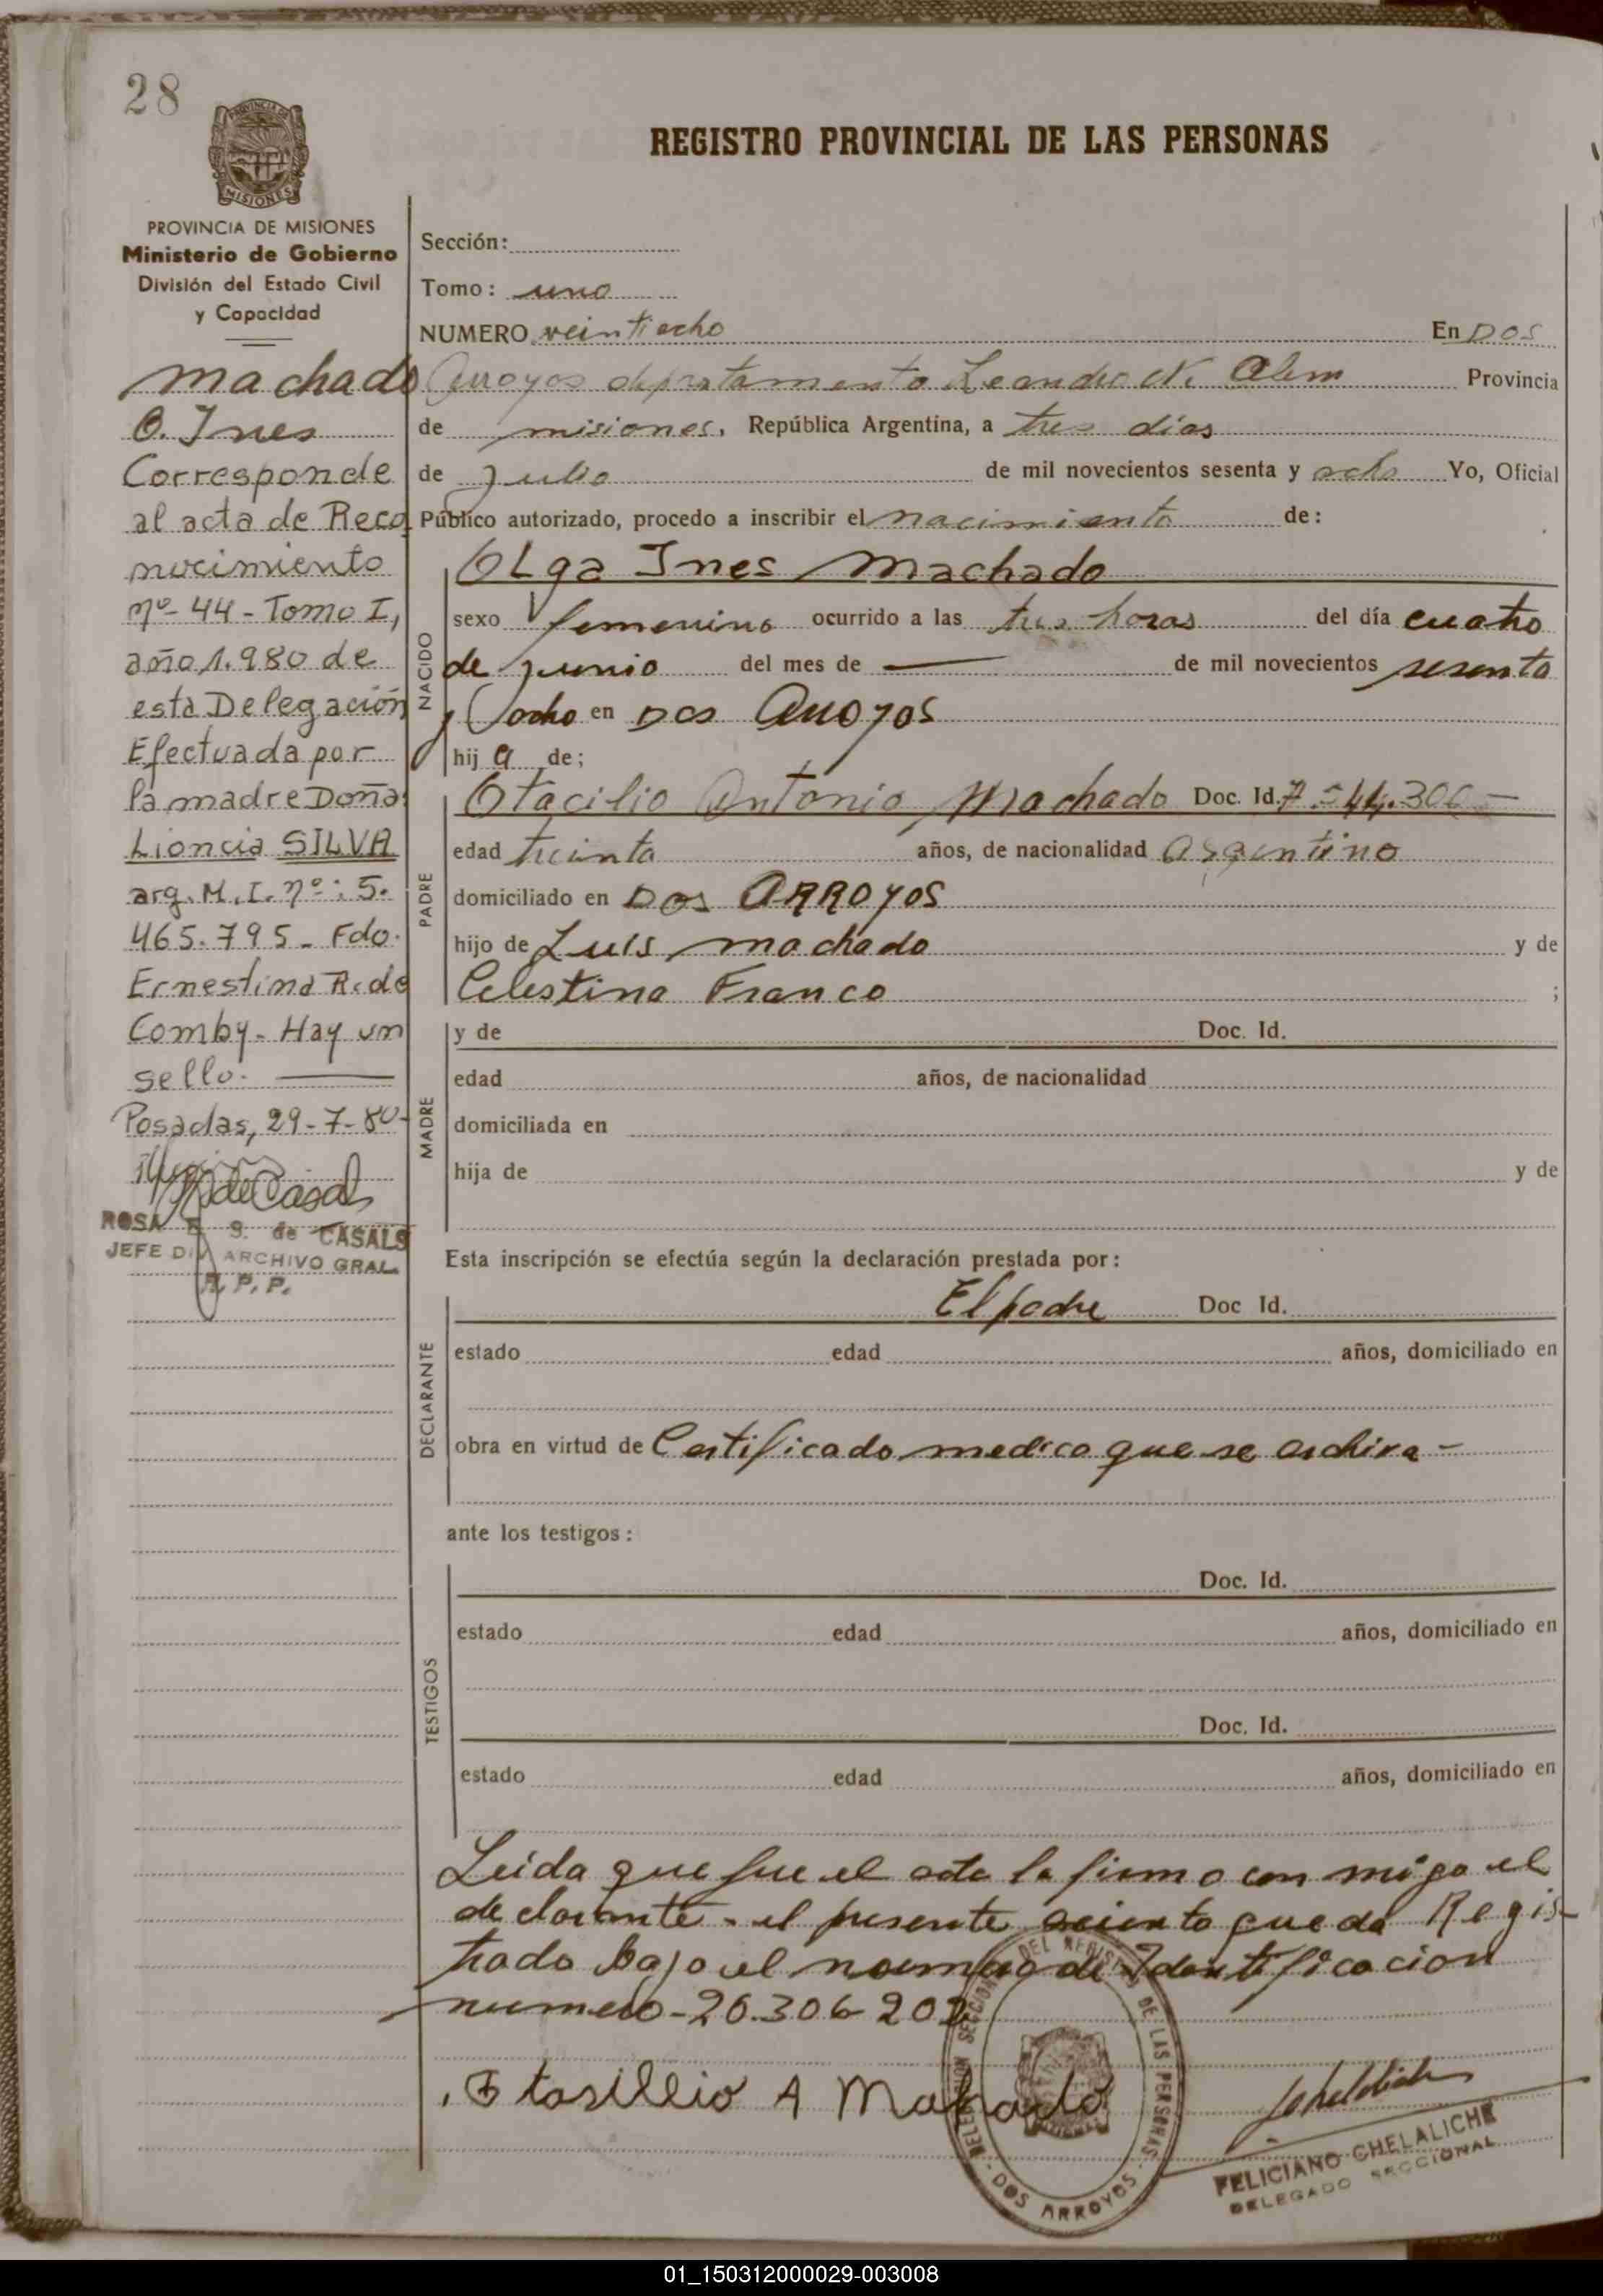 28
PROVINCIA DE MISIONES
Ministerio de Gobierno
División del Estado Civil
y Capacidad
REGISTRO PROVINCIAL DE LAS PERSONAS
Sección:
Tomo: uno
NUMERO veintiocho En DOS
Arroyos depratamento Leandro N. Alem Provincia
de misiones, República Argentina, a tres días
de Julio de mil novecientos sesenta y ocho Yo, Oficial
Público autorizado, procedo a inscribir el nacimiento de:
machado
O. Ines
Corresponde
al acta de Reco
nocimiento
nº 44 - Tomo I,
año 1.980 de
esta Delegación
Efectuada por
la madre Doña:
Lioncia SILVA
arg. M. I. nº: 5.
465.795 - Fdo.
Ernestina R. de
Comby - Hay un
sello.
Posadas, 29-7-80-
ROSA E. S. de CASALS
JEFE DIV ARCHIVO GRAL.
R. P. P.
NACIDO
Olga Ines Machado
sexo femenino ocurrido a las tres horas del día cuatro
de junio del mes de — de mil novecientos sesenta
y ocho en Dos Arroyos
hija de;
PADRE
Otacilio Antonio Machado Doc. Id. 7.544.306-
edad treinta años, de nacionalidad argentino
domiciliado en Dos ARROYOS
hijo de Luis machado y de
Celestina Franco ;
MADRE
y de Doc. Id.
edad años, de nacionalidad
domiciliada en
hija de y de
Esta inscripción se efectúa según la declaración prestada por:
DECLARANTE
El padre Doc Id.
estado edad años, domiciliado en
obra en virtud de Certificado medico que se archiva -
ante los testigos:
TESTIGOS
Doc. Id.
estado edad años, domiciliado en
Doc. Id.
estado edad años, domiciliado en
Leida que fue el acta la firma con migo el
declarante - el presente aciento queda Regis-
trado bajo el numero de Identificacion
numero - 20.306 202
Otasillio A Mahado
DELEGACION SECCIONAL DEL REGISTRO DE LAS PERSONAS
DOS ARROYOS
FELICIANO CHELALICHE
DELEGADO SECCIONAL
01_150312000029-003008